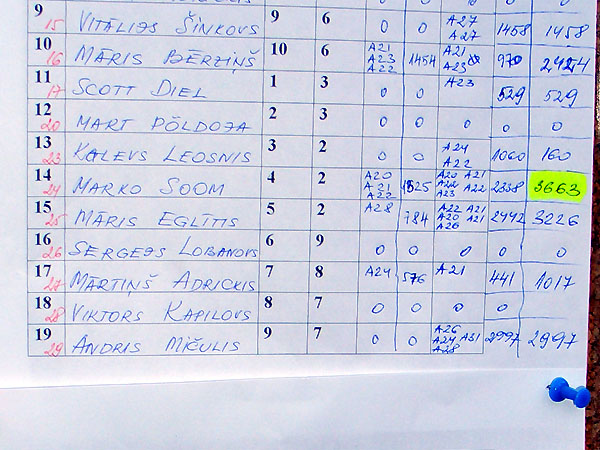 9 15 VITĀLIJS ŠINKOVS 9 6 0 0 A27 A27 1458 1458
10 16 MĀRIS BĒRZIŅŠ 10 6 A21 A23 A22 1454 A21 A23 970 2424
11 17 SCOTT DIEL 1 3 0 0 A23 529 529
12 20 MART PÕLDOJA 2 3 0 0 0 0 0
13 23 KALEVS LEOSNIS 3 2 0 0 A24 A22 1060 160
14 24 MARKO SOOM 4 2 A20 A21 A22 1325 A20 A21 A22 A22 A23 2338 3663
15 25 MĀRIS EGLĪTIS 5 2 A28 784 A22 A21 A20 A21 A26 2442 3226
16 26 SERGEJS LOBANOVS 6 9 0 0 0 0 0
17 27 MĀRTIŅŠ ADRICKIS 7 8 A24 576 A21 441 1017
18 28 VIKTORS KAPILOVS 8 7 0 0 0 0
19 29 ANDRIS MIČULIS 9 7 0 0 A26 A24 A31 A28 2997 2997